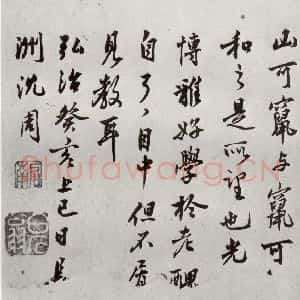 山可竄与竄可
和之是所望也光
博雅好學於老醜
自了了目中但不屑
見教耳
弘治癸亥上巳日長
洲沈周
Shufawang.CN